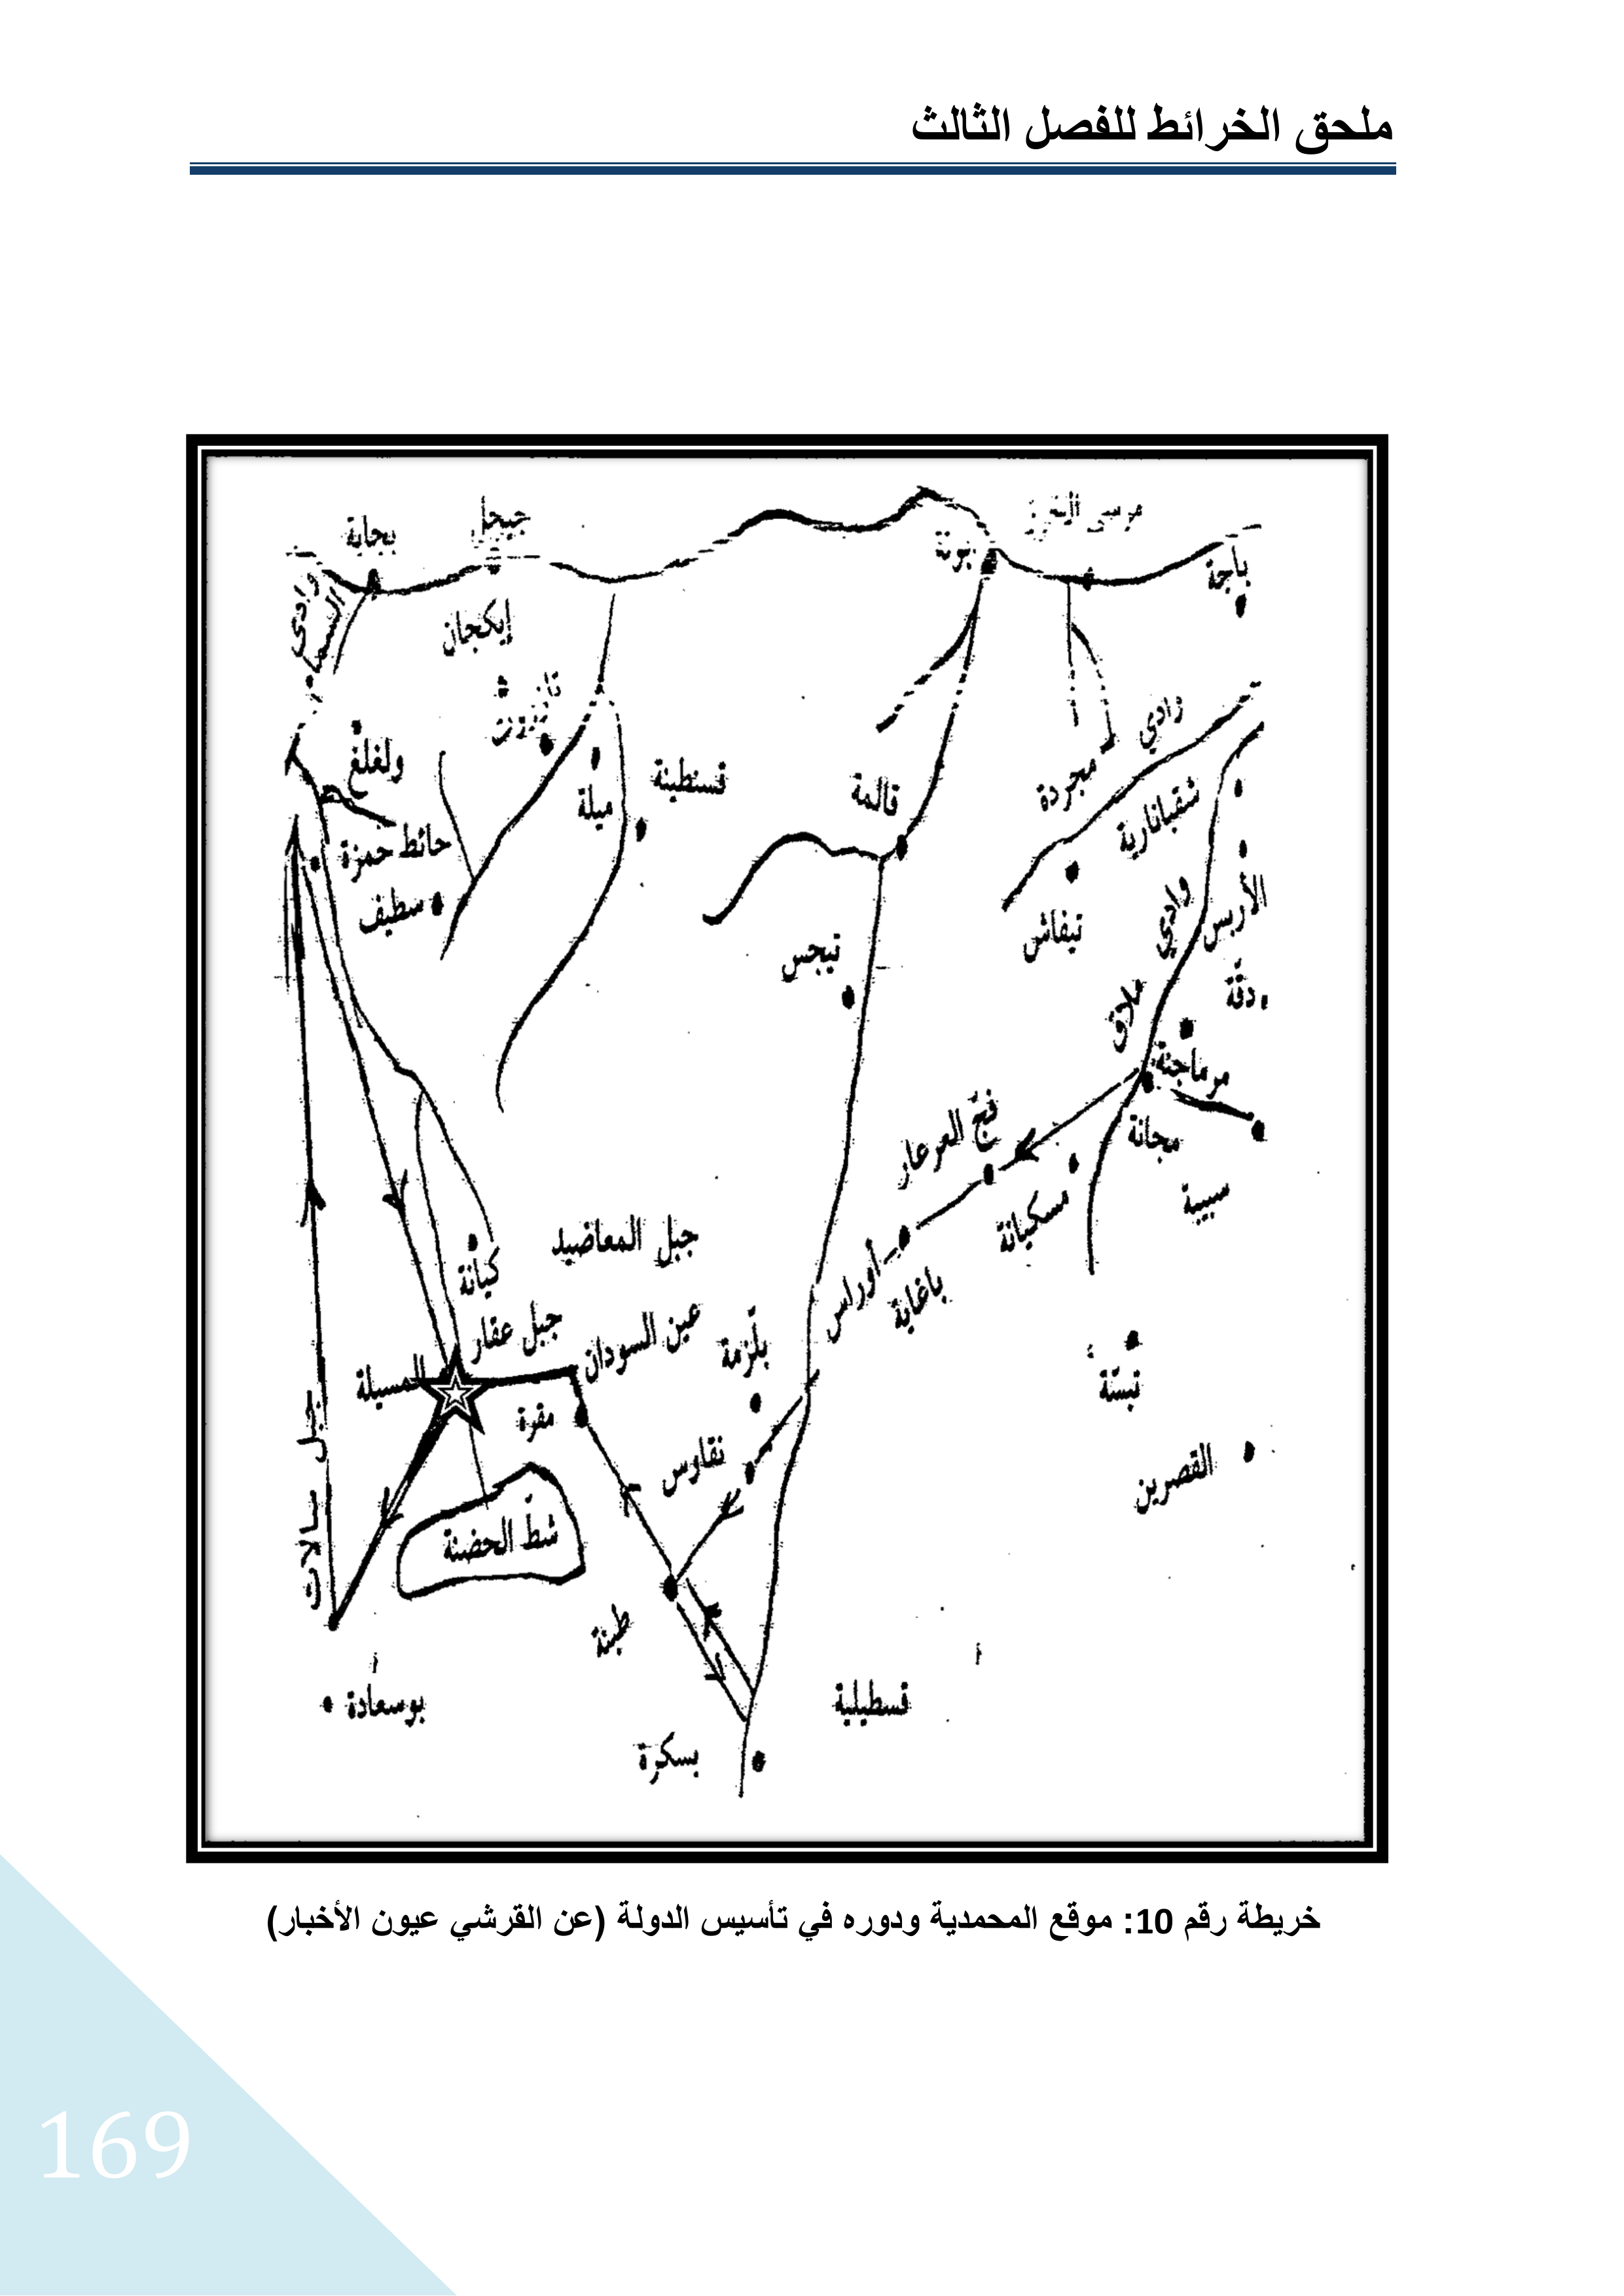 ملحق الخرائط للفصل الثالث
بجاية
جيجل
بونة
باجة
إيكجان
وادي
ميلة
قسنطينة
قالمة
وادي
مجردة
شقبانارية
حائط حمزة
سطيف
تيجس
تيفاش
الأربس
وادي
ملاق
دقة
مرماجنة
مجانة
فج العرعار
سكيانة
سبيبة
جبل المعاضيد
كيانة
جبل عقار
عين السودان
بلزمة
أوراس
باغاية
تبسّة
المسيلة
مقرة
نقاوس
القصرين
جبل سالات
شط الحضنة
طبنة
بوسعادة
قسطيلية
بسكرة
خريطة رقم 10: موقع المحمدية ودوره في تأسيس الدولة (عن القرشي عيون الأخبار)
169